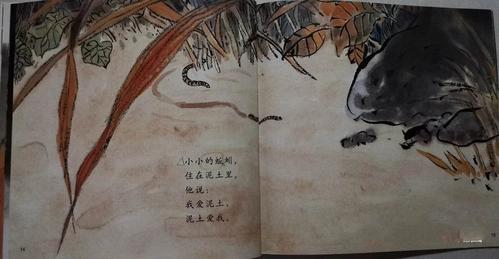 小小的蚯蚓，
住在泥土里。
他说：
我爱泥土，
泥土爱我。
14
15